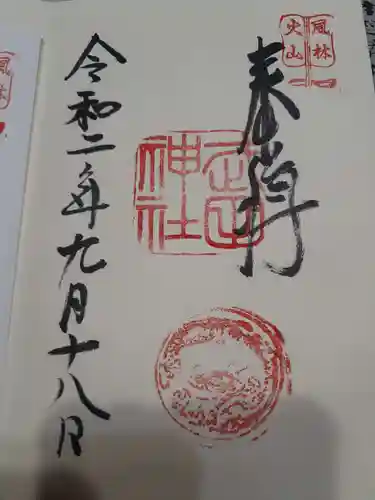 風林
火山
奉拝
武田
神社
令和二年九月十八日
風林